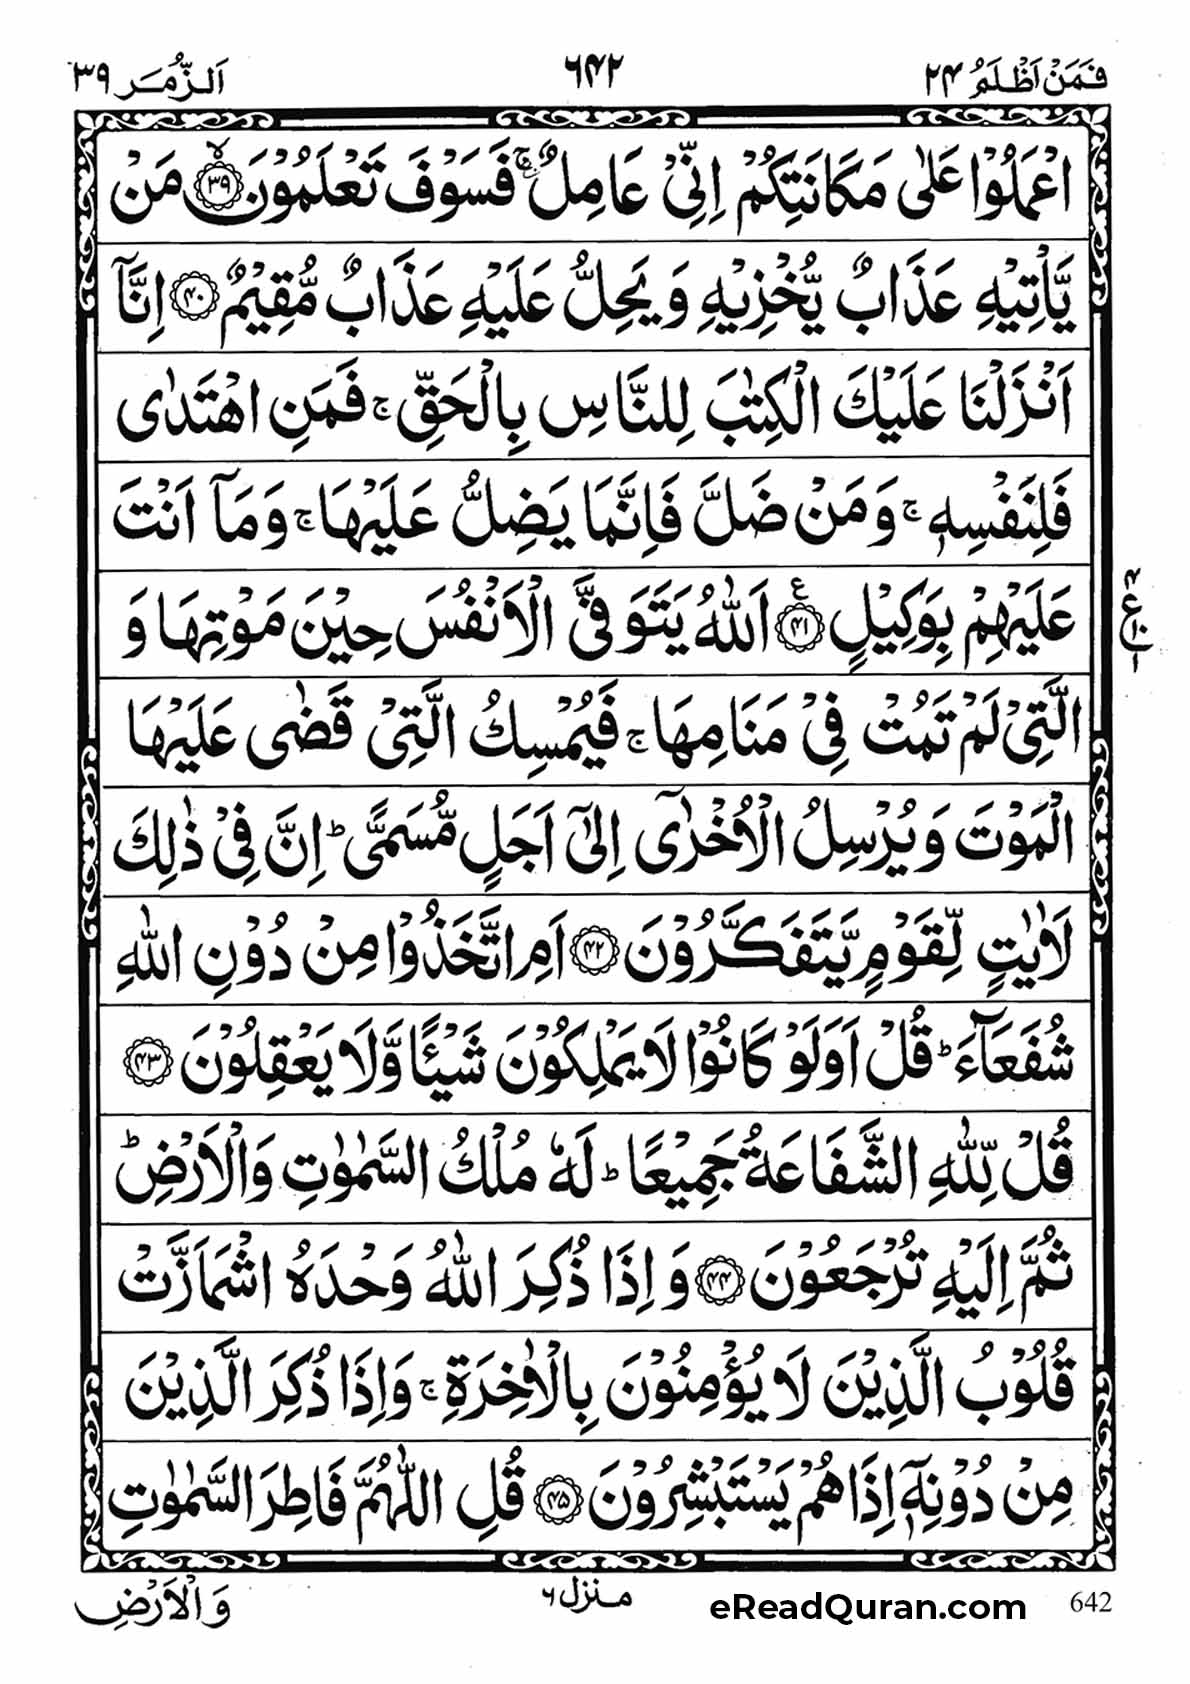 فَمَنْ اَظْلَمُ ٢٤
٦٤٢
اَلزُّمَر ٣٩
اعْمَلُوْا عَلٰى مَكَانَتِكُمْ اِنِّیْ عَامِلٌ ۚ فَسَوْفَ تَعْلَمُوْنَ ۙ﴿٣٩﴾ مَنْ
يَّاْتِيْهِ عَذَابٌ يُّخْزِيْهِ وَيَحِلُّ عَلَيْهِ عَذَابٌ مُّقِيْمٌ ﴿٤٠﴾ اِنَّاۤ
اَنْزَلْنَا عَلَيْكَ الْكِتٰبَ لِلنَّاسِ بِالْحَقِّ ۚ فَمَنِ اهْتَدٰى
فَلِنَفْسِهٖ ۚ وَمَنْ ضَلَّ فَاِنَّمَا يَضِلُّ عَلَيْهَا ۚ وَمَاۤ اَنْتَ
عَلَيْهِمْ بِوَكِيْلٍ ﴿٤١﴾ ع اَللّٰهُ يَتَوَفَّى الْاَنْفُسَ حِيْنَ مَوْتِهَا وَ
الَّتِیْ لَمْ تَمُتْ فِیْ مَنَامِهَا ۚ فَيُمْسِكُ الَّتِیْ قَضٰى عَلَيْهَا
الْمَوْتَ وَيُرْسِلُ الْاُخْرٰۤى اِلٰۤى اَجَلٍ مُّسَمًّى ؕ اِنَّ فِیْ ذٰلِكَ
لَاٰيٰتٍ لِّقَوْمٍ يَّتَفَكَّرُوْنَ ﴿٤٢﴾ اَمِ اتَّخَذُوْا مِنْ دُوْنِ اللّٰهِ
شُفَعَآءَ ؕ قُلْ اَوَلَوْ كَانُوْا لَا يَمْلِكُوْنَ شَيْـًٔا وَّلَا يَعْقِلُوْنَ ﴿٤٣﴾
قُلْ لِّلّٰهِ الشَّفَاعَةُ جَمِيْعًا ؕ لَهٗ مُلْكُ السَّمٰوٰتِ وَالْاَرْضِ ؕ
ثُمَّ اِلَيْهِ تُرْجَعُوْنَ ﴿٤٤﴾ وَاِذَا ذُكِرَ اللّٰهُ وَحْدَهُ اشْمَاَزَّتْ
قُلُوْبُ الَّذِيْنَ لَا يُؤْمِنُوْنَ بِالْاٰخِرَةِ ۚ وَاِذَا ذُكِرَ الَّذِيْنَ
مِنْ دُوْنِهٖۤ اِذَا هُمْ يَسْتَبْشِرُوْنَ ﴿٤٥﴾ قُلِ اللّٰهُمَّ فَاطِرَ السَّمٰوٰتِ
وَالْاَرْضِ
منزل ٦
eReadQuran.com
642